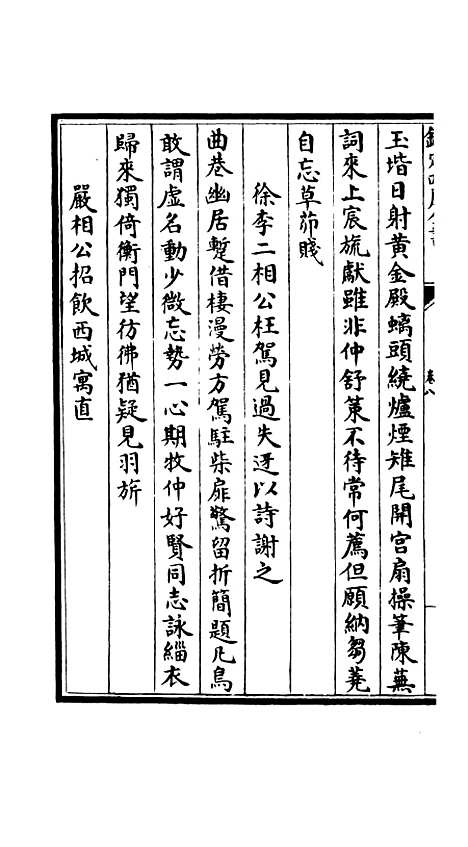 玉堦日射黄金殿螭頭繞爐煙雉尾開宫扇操筆陳蕪
詞來上宸旒獻雖非仲舒策不待常何薦但願納芻蕘
自忘草茆賤
徐李二相公枉駕見過失迓以詩謝之
曲巷幽居蹔借棲漫勞方駕駐柴扉驚留折簡題凡鳥
敢謂虚名動少微忘勢一心期牧仲好賢同志詠緇衣
歸來獨倚衡門望彷彿猶疑見羽旂
嚴相公招飲西城寓直